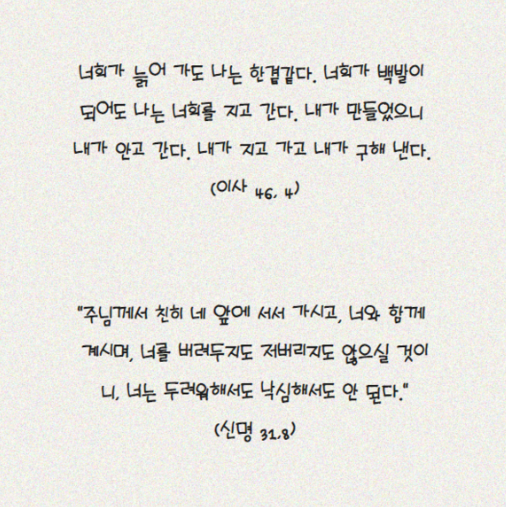 너희가 늙어 가도 나는 한결같다. 너희가 백발이
되어도 나는 너희를 지고 간다. 내가 만들었으니
내가 안고 간다. 내가 지고 가고 내가 구해 낸다.
(이사 46, 4)
"주님께서 친히 네 앞에 서서 가시고, 너와 함께
계시며, 너를 버려두지도 저버리지도 않으실 것이
니, 너는 두려워해서도 낙심해서도 안 된다."
(신명 31.8)